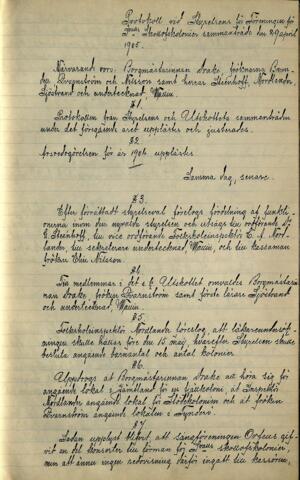 Protokoll vid Styrelsens för Föreningen för
Skollofskolonier sammanträde den 29 april
1905
Närvarande voro: Borgmästarinnan Arake, fröknarna Bern-
Bergström och Nilsson samt herrar Steinhoff, Nordlander
Sjöstrand och undertecknad, Wallin.
§1.
Protokollen från Styrelsens och Utskottets sammanträden
under det föregående året upplästes och justerades.
§2.
Årsredogörelsen för år 1904 upplästes.
Samma dag, senare.
§3.
Efter förrättadt styrelseval företogs fördelning af funkti-
onerna inom den nyvalda styrelsen och utsågs till ordförande
E Steinhoff, till vice ordförande Folkskoleinspektör E. J. Nord-
lander, till sekreterare undertecknad, Wallin, och till kassaman
fröken Elin Nilsson.
§4.
Till medlemmar i det s. k. Utskottet omvaldes Borgmästarin-
nan Arake, fröken Barnström samt förste lärare Sjöstrand
och undertecknad, Wallin.
§5.
Folkskoleinspektör Nordlander föreslog, att läkareundersök-
ningen skulle hållas före den 15 maj, hvarefter Styrelsen skulle
besluta angående barnantal och antal kolonier.
§6.
Uppdrogs åt Borgmästarinnan Arake att höra sig för
angående lokal i Jämtland för en fjällkoloni, åt Inspektör
Nordlander angående lokal för kolonien och åt fröken
Barnström angående lokalen i Tynderö.
§7.
Sedan upplyst blifvit, att sångföreningen Orfeus gif-
vit en del konserter till förmån för skollofskolonier,
men att ännu ingen redovisning därför ingått till kassören,